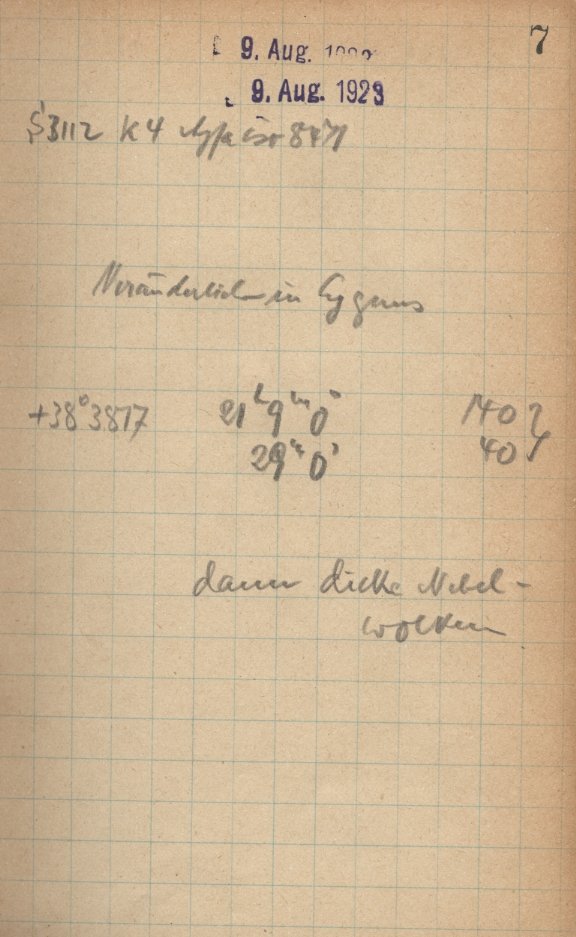 7
9. Aug.
9. Aug. 1923
S3112 K4
Veränderliche in Cygnus
+38° 3817 21h 9m 0s 140
29m 0s 40
dann dicke Nebel-
wolken